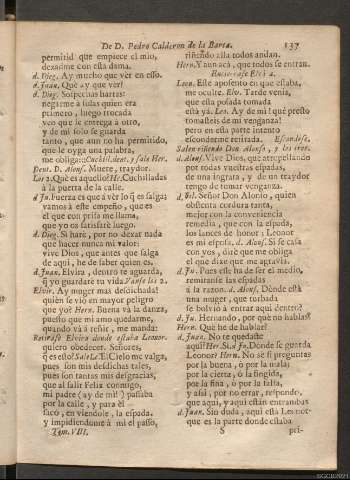 De D. Pedro Calderon de la Barca. 137
permitid que empiece el mio,
dexadme con esta dama.
d. Dieg. Ay mucho que ver en esso.
d. Juan. Què ay que ver?
d. Dieg. Sospechas hartas:
negarme à solas quien era
primero, luego trocada
veo que se entrega à otro,
y de mi solo se guarda
tanto, que aun no ha permitido,
que le oyga una palabra,
me obliga:: Cuchill. dent. y sale Her.
Dent. D. Alons. Muere, traydor.
Los 2. Què es aquesto? He. Cuchilladas
à la puerta de la calle.
d. Ju. fuerza es que à vèr lo q̃ es salga;
vamos à este empeño, que es
el que con prisa me llama,
que yo os satisfarè luego.
d. Dieg. Si harè, por no dexar nada
que hacer nunca mi valor:
vive Dios, que antes que salga
de aqui, he de saber quien es.
d. Juan. Elvira, dentro te aguarda,
q̃ yo guardarè tu vida. Vanse los 2.
Elvir. Ay muger mas desdichada!
quièn se viò en mayor peligro
que yo? Hern. Buena và la danza,
puesto que mi amo quedarme,
quando và à reñir, me manda:
Retirase Elvira donde estaba Leonor.
quiero obedecer. Señores,
q̃ es esto? Sale Le. El Cielo me valga,
pues son mis desdichas tales,
pues son tantas mis desgracias,
que al salir Felix conmigo,
mi padre (ay de mi!) passaba
por la calle, y para èl
sacò, en viendole, la espada.
y impidiendume à mi el passo,
Tom. VIII.
riñendo allà todos andan.
Hern. Y aun acà, que todos se entran.
Encierrase Elvira.
Leon. Este aposento en que estaba,
me oculte. Elv. Tarde venìa,
que esta posada tomada
està yà. Leo. Ay de mi! què presto
tomasteis de mi venganza!
pero en esta parte intento
esconderme retirada. Escondese.
Salen riñendo Don Alonso, y los tres.
d. Alons. Vive Dios, que atropellando
por todas vuestras espadas,
de una ingrata, y de un traydor
tengo de tomar venganza.
d. Fel. Señor Don Alonso, quien
obscurta cordura tanta,
mejor con la conveniencia
remedia, que con la espada,
los lances de honor; Leonor
es mi esposa. d. Alons. Si se casa
con vos, dirè que me obliga
el que dixe que me agravia.
d. Ju. Pues esse ha de ser el medio,
remitanse las espadas
à la razon. d. Alons. Dònde està
una muger, que turbada
se bolviò à entrar aqui dentro?
d. Ju. Hernando, por què no hablas?
Hern. Què he de hablar?
d. Juan. No te quedaste
aqui? Her. Si. d. Ju. Dònde se guarda
Leonor? Hern. No sè si preguntas
por la buena, ò por la mala;
por la cierta, ò la fingida,
por la fina, ò por la falsa,
y assi, por no errar, respondo,
que aqui, y aqui estàn entrambas
d. Juan. Sin duda, aqui està Leonor:
que es la parte donde estaba
S pri-